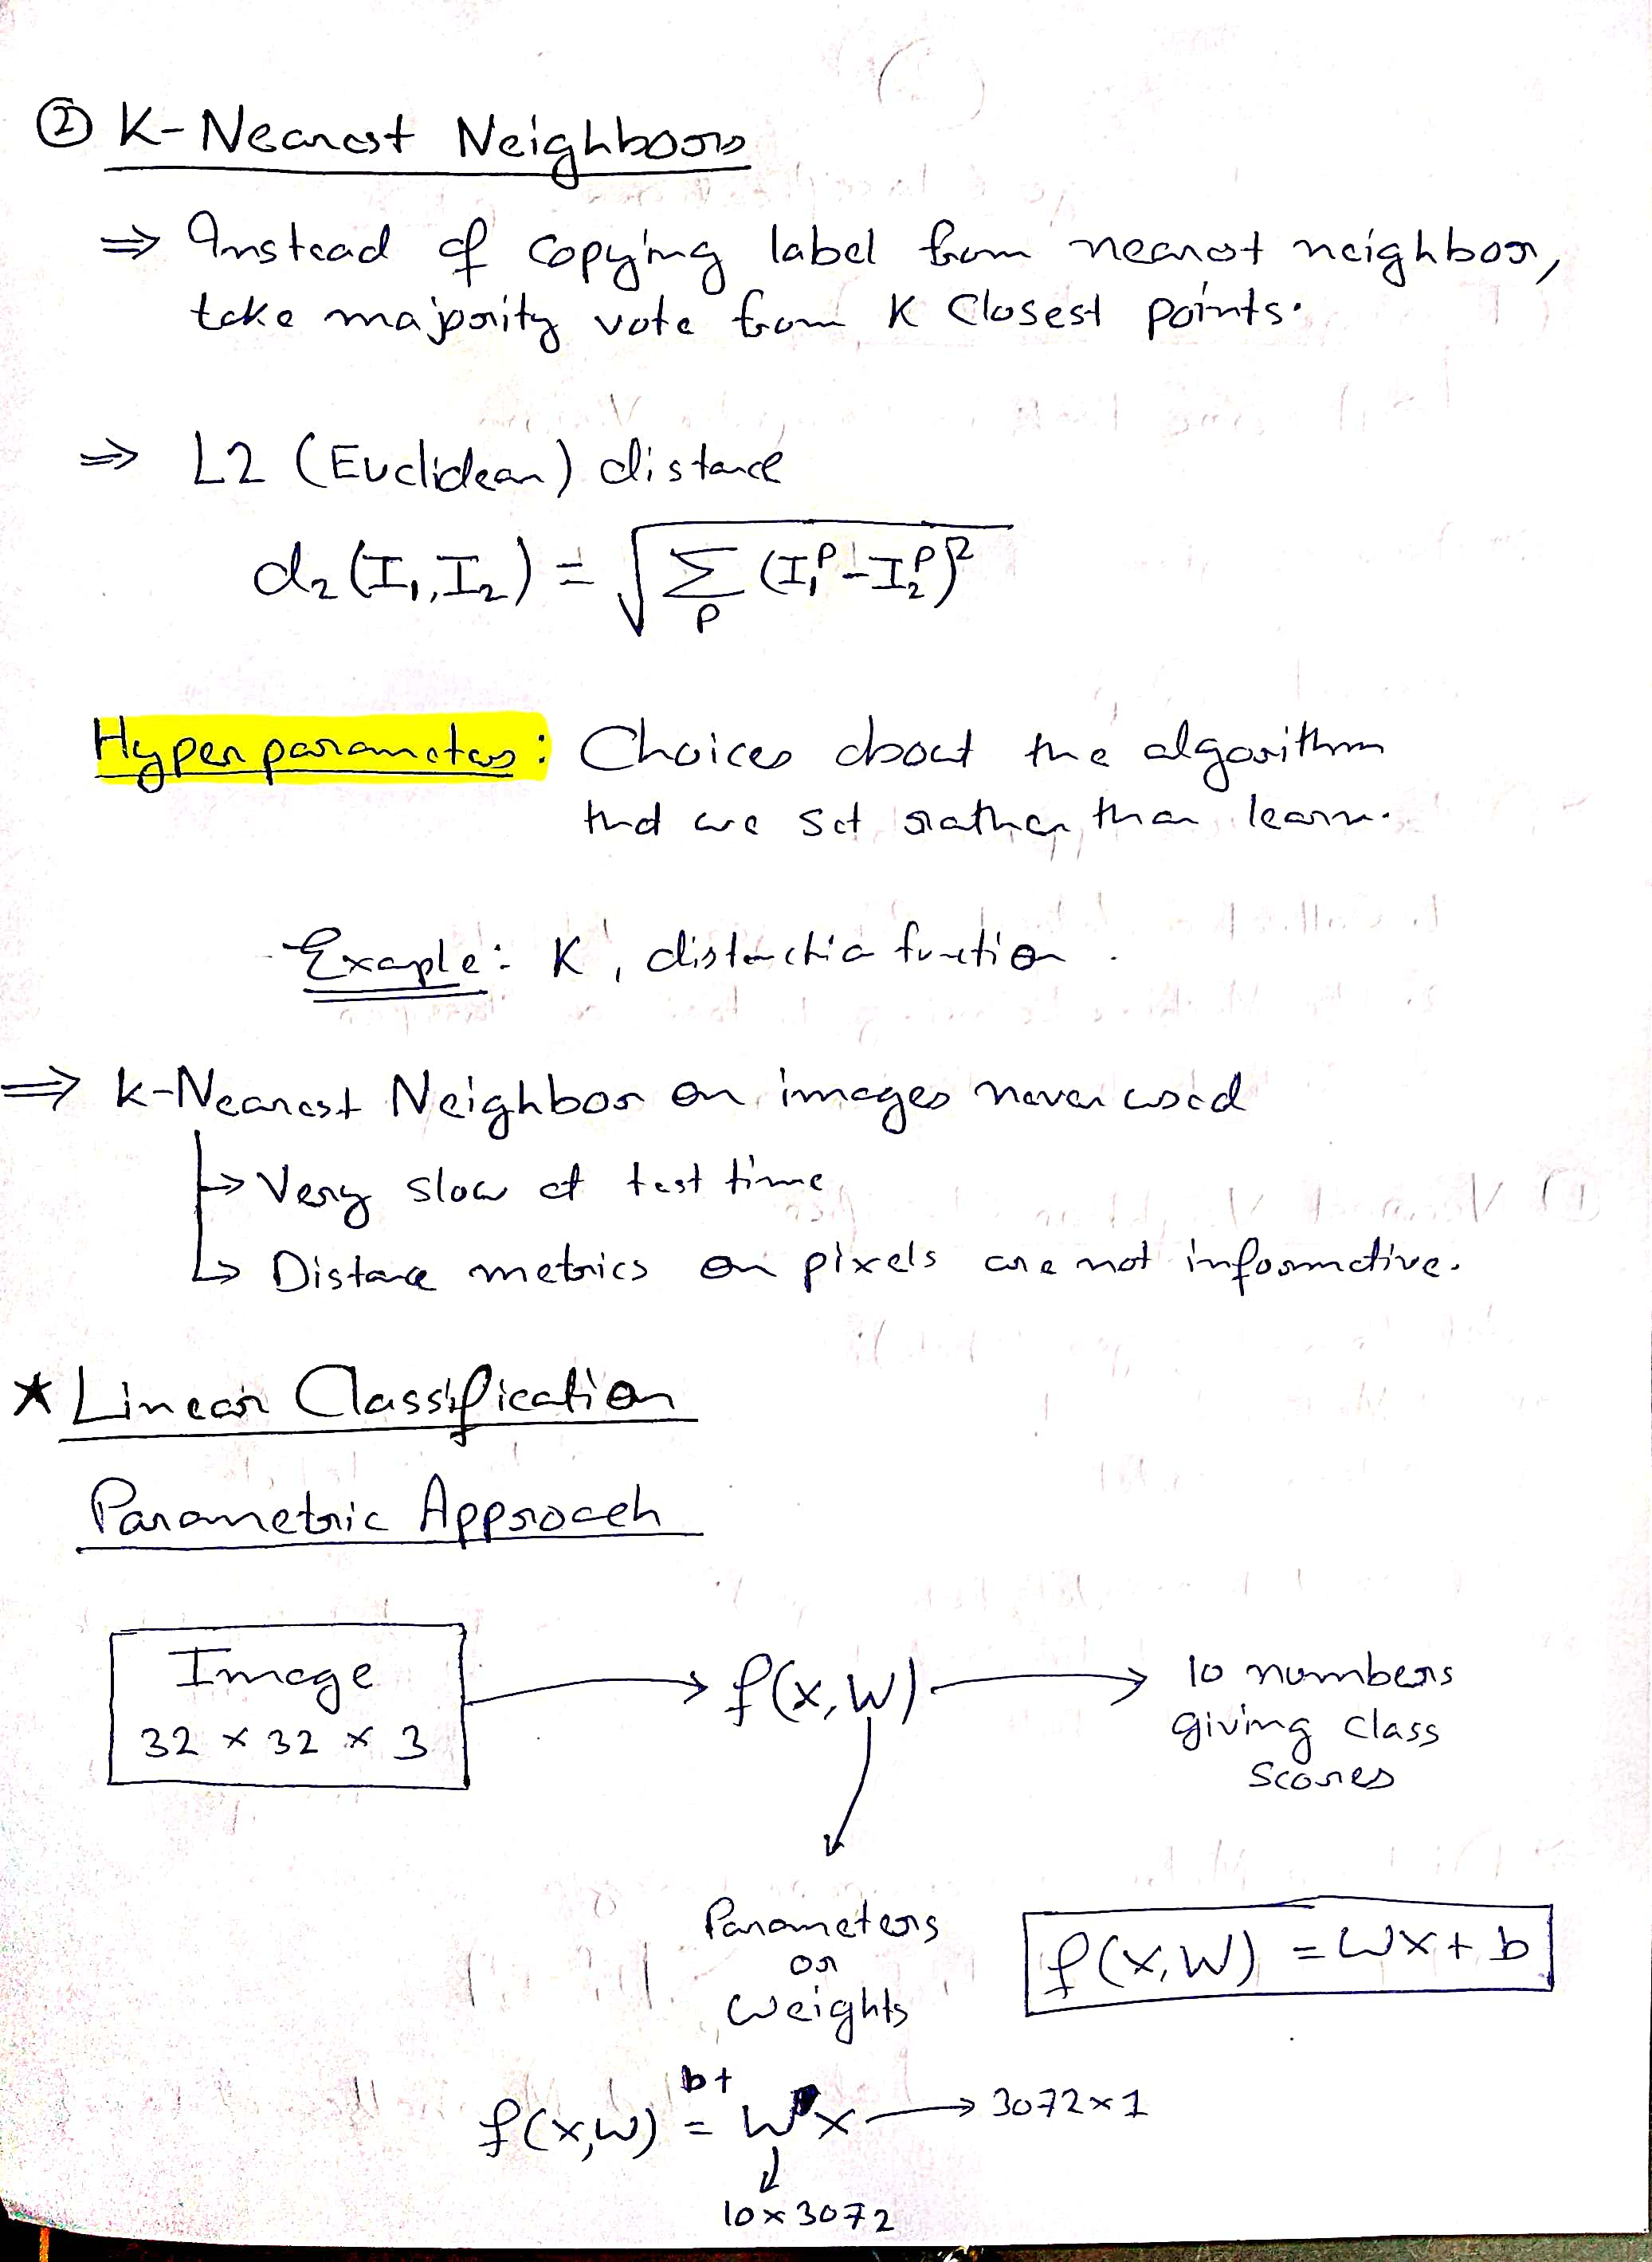 ② K-Nearest Neighbors
⇒ Instead of copying label from nearest neighbor,
take majority vote from K closest points.
⇒ L2 (Euclidean) distance
d₂(I₁, I₂) = √(∑_P (I₁^P - I₂^P)²)
Hyperparameters: Choices about the algorithm
that we set rather than learn.
Example: K, function.
⇒ K-Nearest Neighbor on images never used
↳ Very slow at test time
↳ Distance metrics on pixels are not informative.
★ Linear Classification
Parametric Approach
Image → f(x,W) → 10 numbers
32 × 32 × 3 giving class
scores
Parameters
or
weights
f(x,W) = Wx + b
b+
f(x,W) = Wx → 3072×1
10×3072